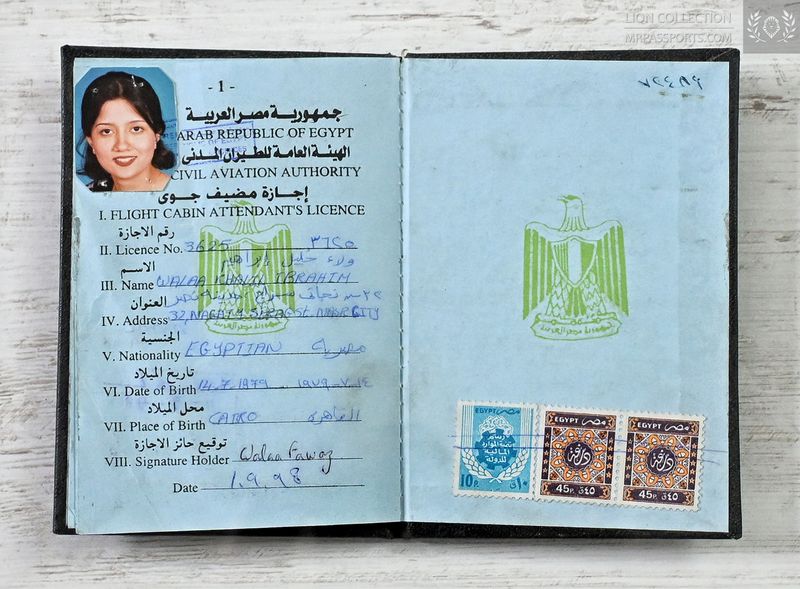 LION COLLECTION
MRPASSPORTS.COM
- 1 -
جمهورية مصر العربية
ARAB REPUBLIC OF EGYPT
الهيئة العامة للطيران المدنى
CIVIL AVIATION AUTHORITY
إجازة مضيف جوى
I. FLIGHT CABIN ATTENDANT'S LICENCE
رقم الاجازة
II. Licence No. 3625 ٣٦٢٥
الاسم ولاء خليل إبراهيم
III. Name WALAA KHALIL IBRAHIM
العنوان ٣٢ ش نجاتى سراج مدينة نصر
IV. Address 32, NAGATY SERAG ST. NASR CITY
الجنسية
V. Nationality EGYPTIAN مصرية
تاريخ الميلاد
VI. Date of Birth 14.7.1979 ١٩٧٩-٧-١٤
محل الميلاد
VII. Place of Birth CAIRO القاهرة
توقيع حائز الاجازة
VIII. Signature Holder Walaa Fawaz
Date 1.9.98
٧٢٤٨٦
جمهورية مصر العربية
EGYPT مصر
10P. ١٠ق
EGYPT مصر
45P. ٤٥ق
EGYPT مصر
45P. ٤٥ق